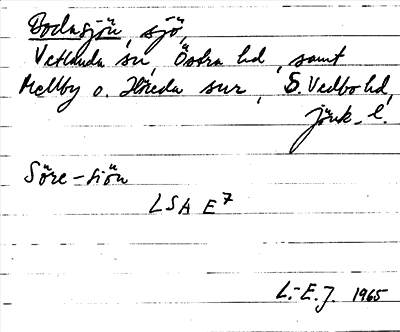 Bodasjön, sjö,
Vetlanda sn, Östra hd, samt
Mellby o. Höreda snr, S. Vedbo hd,
jönk. l.
Söre-siön
LSA E7
L.-E.J. 1965